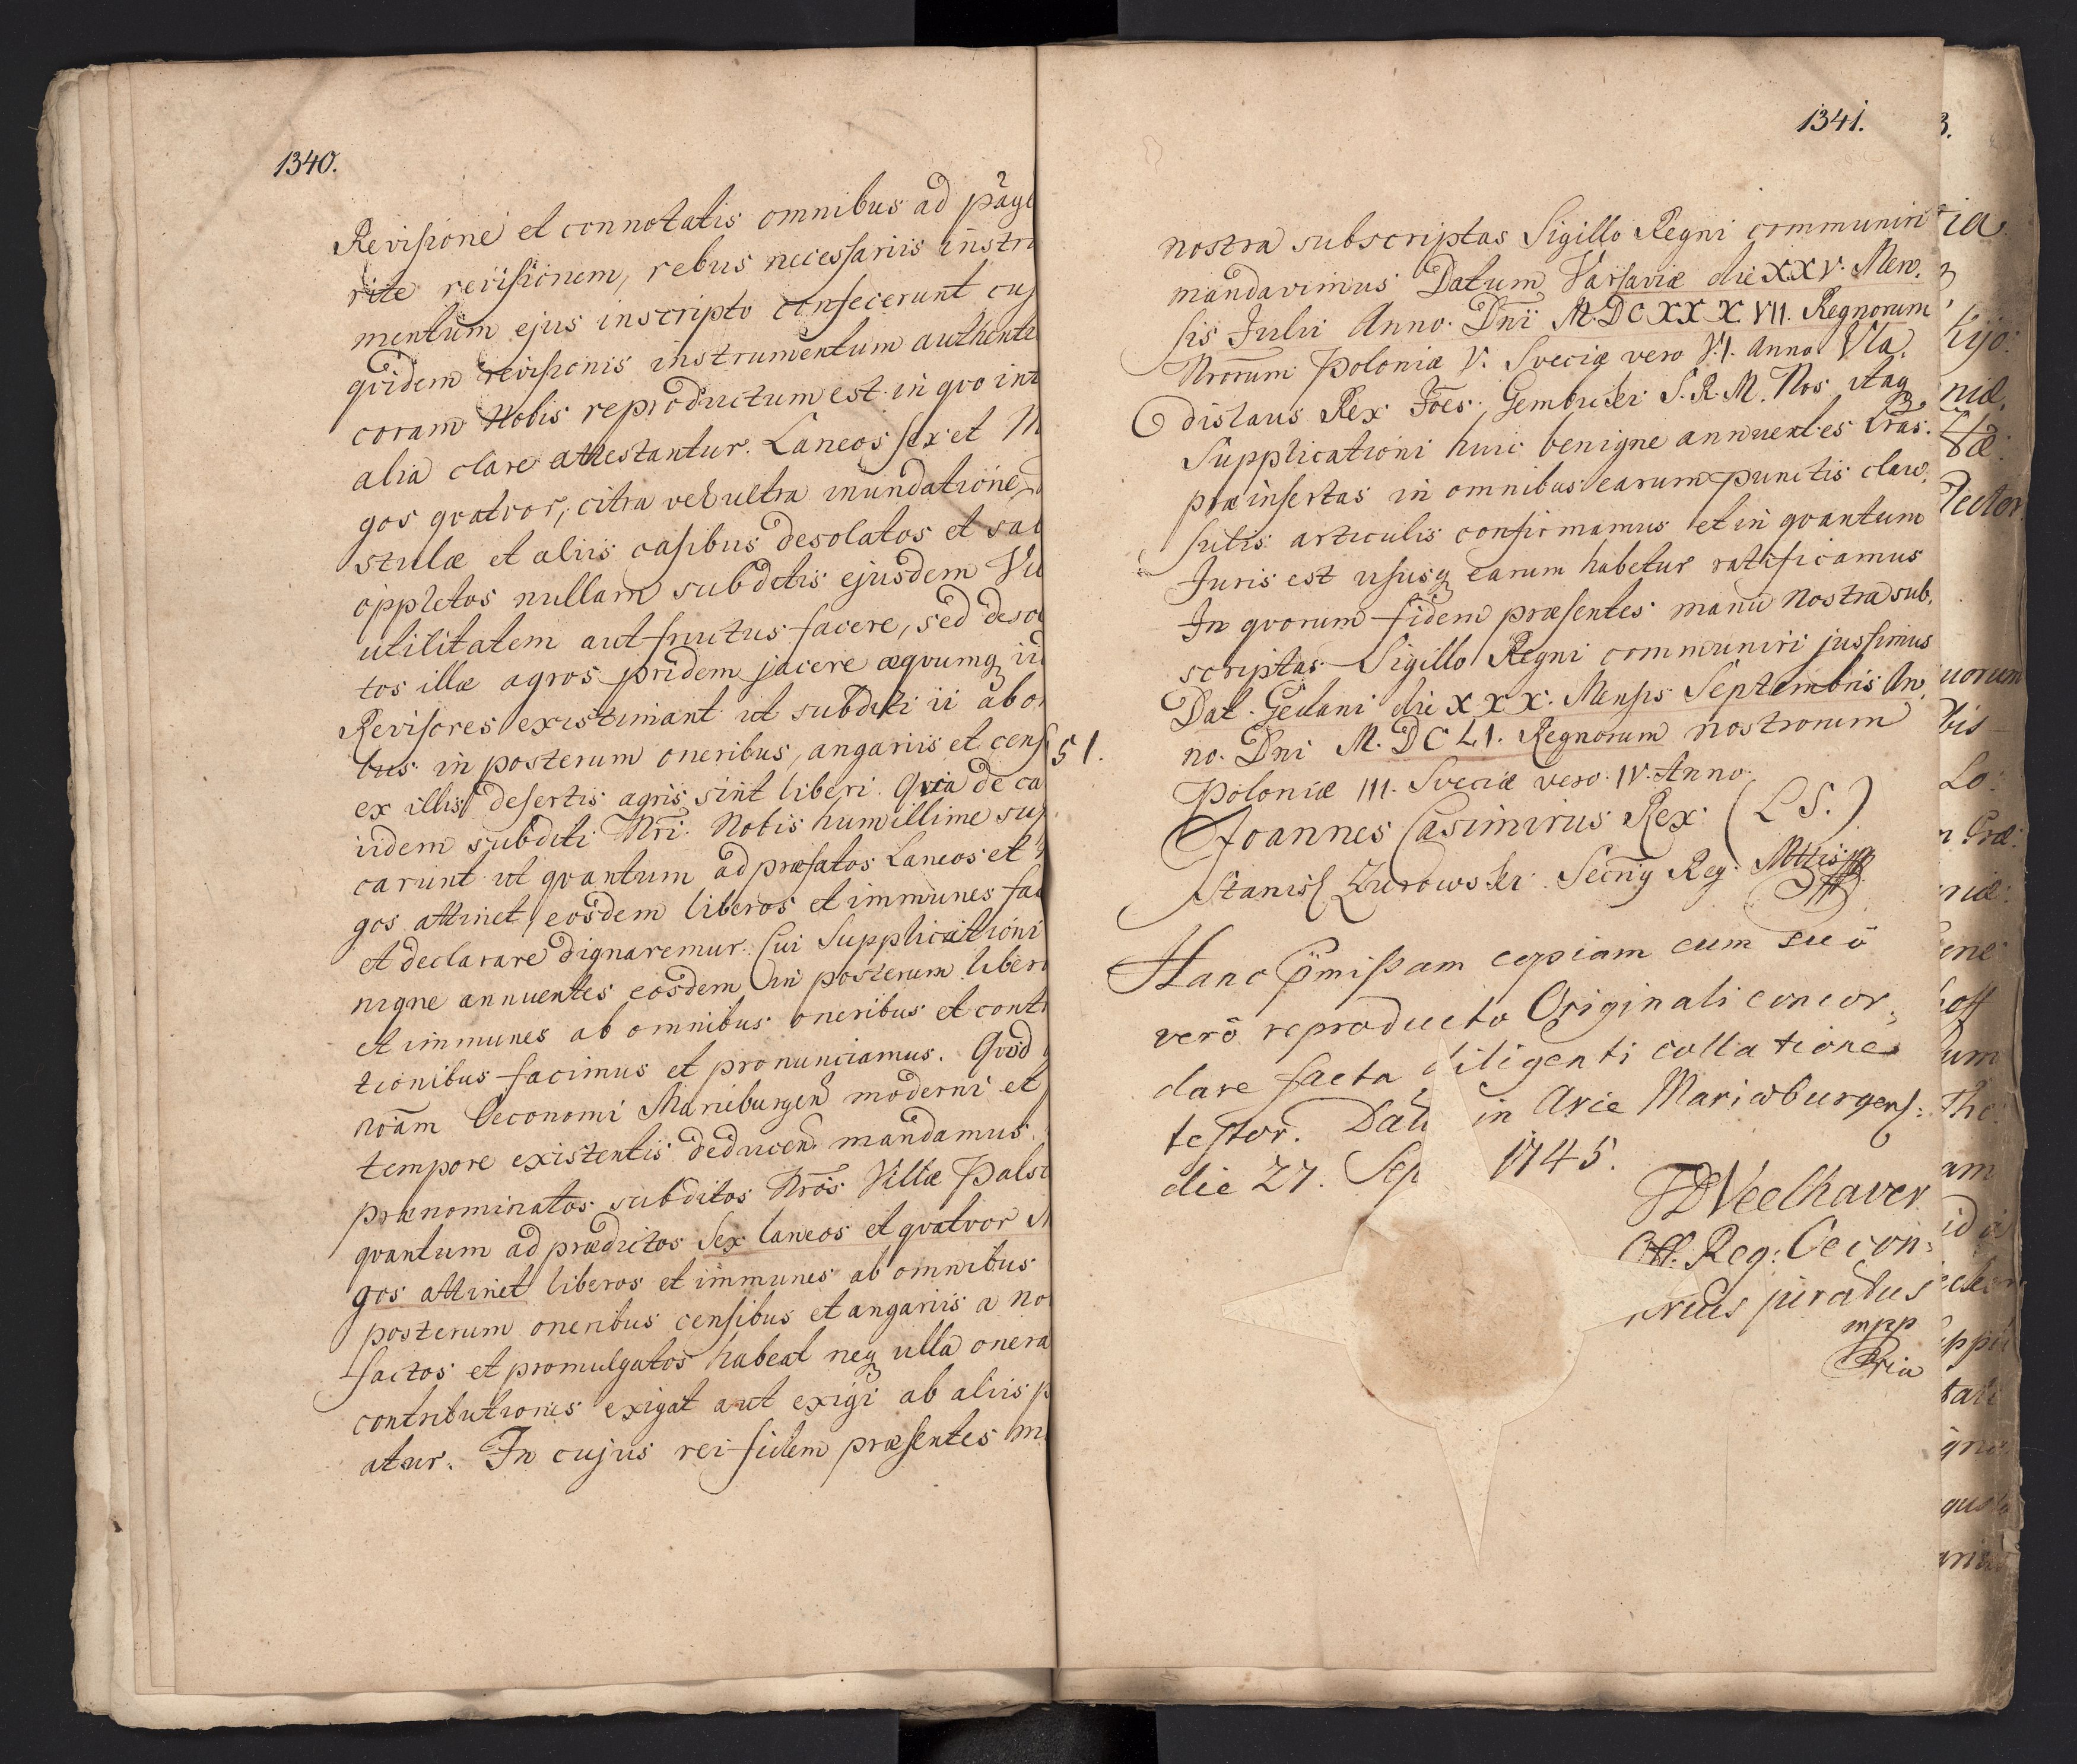 1340.
Revisione et connotatis omnibus ad pagi
rite revisionem, rebus necessariis instru
mentum ejus inscripto confecerunt cuj
quidem revisionis instrumentum authenti
coram Nobis reproductum est in quo int
alia clare attestantur. Laneos sex et M
gos quatvor, citra vel ultra inundatione
stulæ et aliis casibus desolatos et sab
oppletos nullam subditis ejusdem Vil
utilitatem aut fructus facere, sed deso
tos illæ agros pridem jacere æqvumq ii
Revisores existimant ut subditi ii ab o
bus in posterum oneribus, angariis et cens
ex illis desertis agris sint liberi. Qvia de ca
iidem subditi Nri. Nobis humillime sup
carunt ut qvantum ad præfatos Laneos et
gos attinet, eosdem liberos et immunes fac
et declarare dignaremur. Cui Supplicationi
nigne annuentes eosdem in posterum libero
et immunes ab omnibus oneribus et contr
tionibus facimus et pronunciamus. Qvod
noam Oeconomi Marieburgen moderni et
tempore existentis deducen mandamus
prænominatos subditos Nros Villæ Pals
qvantum ad prædictos Sex laneos et qvatvor M
gos attinet liberos et immunes ab omnibus
posterum oneribus censibus et angariis a no
factos et promulgatos habeat neq ulla onera
contributiones exigat aut exigi ab aliis p
atur. In cujus rei fidem præsentes m
1341.
nostra subscriptas Sigillo Regni communiri
mandavimus Datum Varsaviæ die XXV. Men.
sis Julii Anno. Dni M.DCXXXVII. Regnorum
Nrorum Poloniæ V. Sveciæ vero V.I. anno Vla.
dislaus Rex Joes. Gembicki S.R.M. Nos itaq
Supplicationi huic benigne annuentes Lras.
præinsertas in omnibus earum punctis clau.
sulis articulis confirmamus et in qvantum
Juris est ususq earum habetur ratificamus
In qvorum fidem præsentes manu Nostra sub.
scriptas Sigillo Regni communiri jussimus
Dat. Gedani die XXX. Mensis Septembris An.
51. no. Dni M.DCLI. Regnorum nostrorum
Poloniæ III. Sveciæ vero. IV. Anno.
Joannes Casimirus Rex (LS.)
Stanisl Zurowski. Secrrg Reg. Mttis
Hanc pmissam copiam cum suo
vero reproducto Originali concor,
dare facta diligenti collatione
testor. Dat in Arce Mariæburgens:
die 27. Sep 1745.
JDVeelhaver
Off. Reg: Oecon:
rius juratus
mpp
Pria